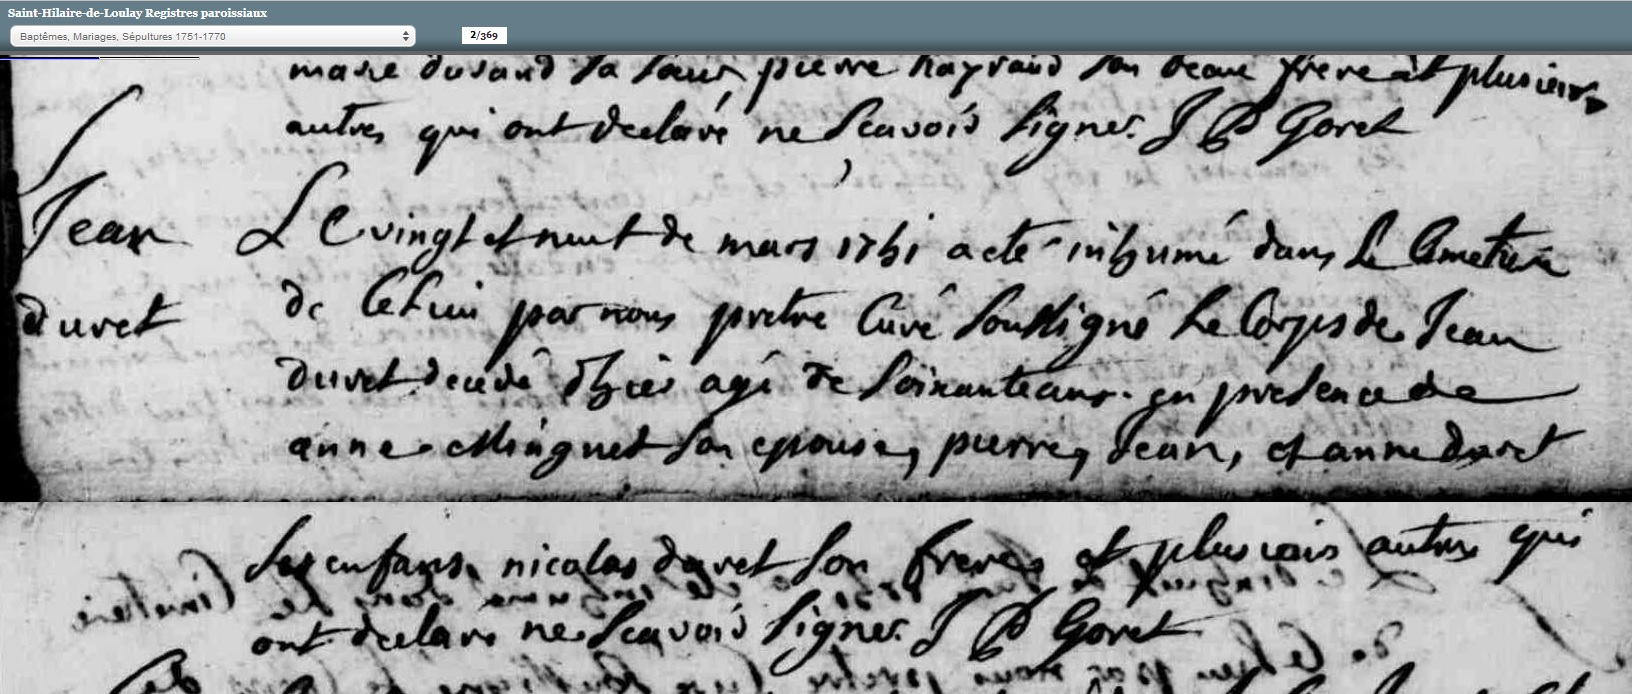 Saint-Hilaire-de-Loulay Registres paroissiaux
Baptêmes, Mariages, Sépultures 1751-1770
2/369
marie durand sa soeur, pierre hayraud son beau frere et plusieurs
autres qui ont declaré ne scavoir signer. J P Goret
Jean
duret
Le vingt et neuf de mars 1751 a eté inhumé dans le Cimetiere
de ce lieu par nous pretre Curé soussigné Le Corps de Jean
duret decedé d'hier agé de soixante ans. en presence de
anne Minguet son epouse, pierre, Jean, et anne duret
ses enfans, nicolas duret son frere, et plusieurs autres qui
ont declaré ne scavoir signer. J P Goret